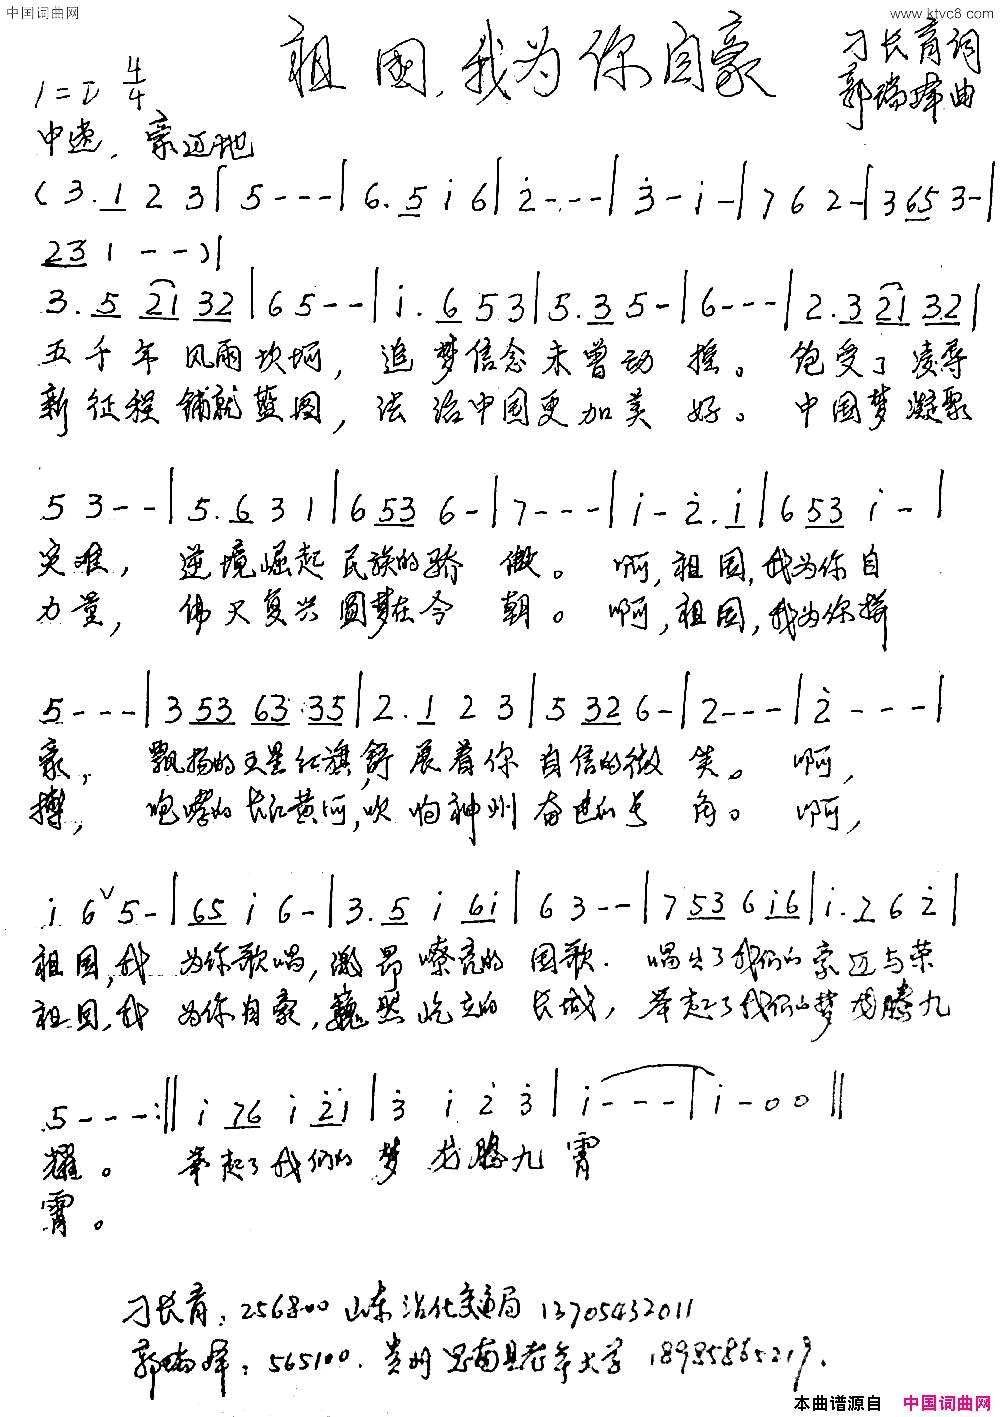 中国词曲网
www.ktvc8.com
祖国,我为你自豪
刁长育词
郭瑞峰曲
1=D 4/4
中速、豪迈地
(3. 1 2 3 | 5 - - - | 6. 5 i 6 | 2̇ - - - | 3̇ - i - | 7 6 2 - | 3 65 3 - |
23 1 - - ) |
3. 5 21 32 | 6 5 - - | i. 6 5 3 | 5. 3 5 - | 6 - - - | 2. 3 21 32 |
五千年 风雨坎坷, 追梦信念未曾动 摇。 饱受了凌辱
新征程 铺就蓝图, 法治中国更加美 好。 中国梦凝聚
5 3 - - | 5. 6 3 1 | 6 53 6 - | 7 - - - | i - 2̇. i | 6 53 i - |
灾难, 逆境崛起民族的骄 傲。 啊,祖国,我为你自
力量, 伟大复兴圆梦在今 朝。 啊,祖国,我为你拼
5 - - - | 3 53 63 35 | 2. 1 2 3 | 5 32 6 - | 2 - - - | 2̇ - - - |
豪, 飘扬的五星红旗,舒展着你 自信的微 笑。 啊,
搏, 咆哮的长江黄河,吹响神州 奋进的号 角。 啊,
i 6 ∨ 5 - | 65 i 6 - | 3. 5 i 6i | 6 3 - - | 7 53 6 i6 | i. 2 6 2̇ |
祖国,我 为你歌唱,激昂嘹亮的 国歌. 唱出了我们的豪迈与荣
祖国,我 为你自豪,巍然屹立的 长城, 举起了我们的梦龙腾九
5 - - - :‖ i 76 i 2̇i | 3̇ i 2̇ 3̇ | i - - - | i - 0 0 ‖
耀。 举起了我们的 梦 龙腾九 霄
霄。
刁长育: 256800 山东沾化交通局 13705432011
郭瑞峰: 565100. 贵州思南县老年大学 18985865219.
本曲谱源自 中国词曲网